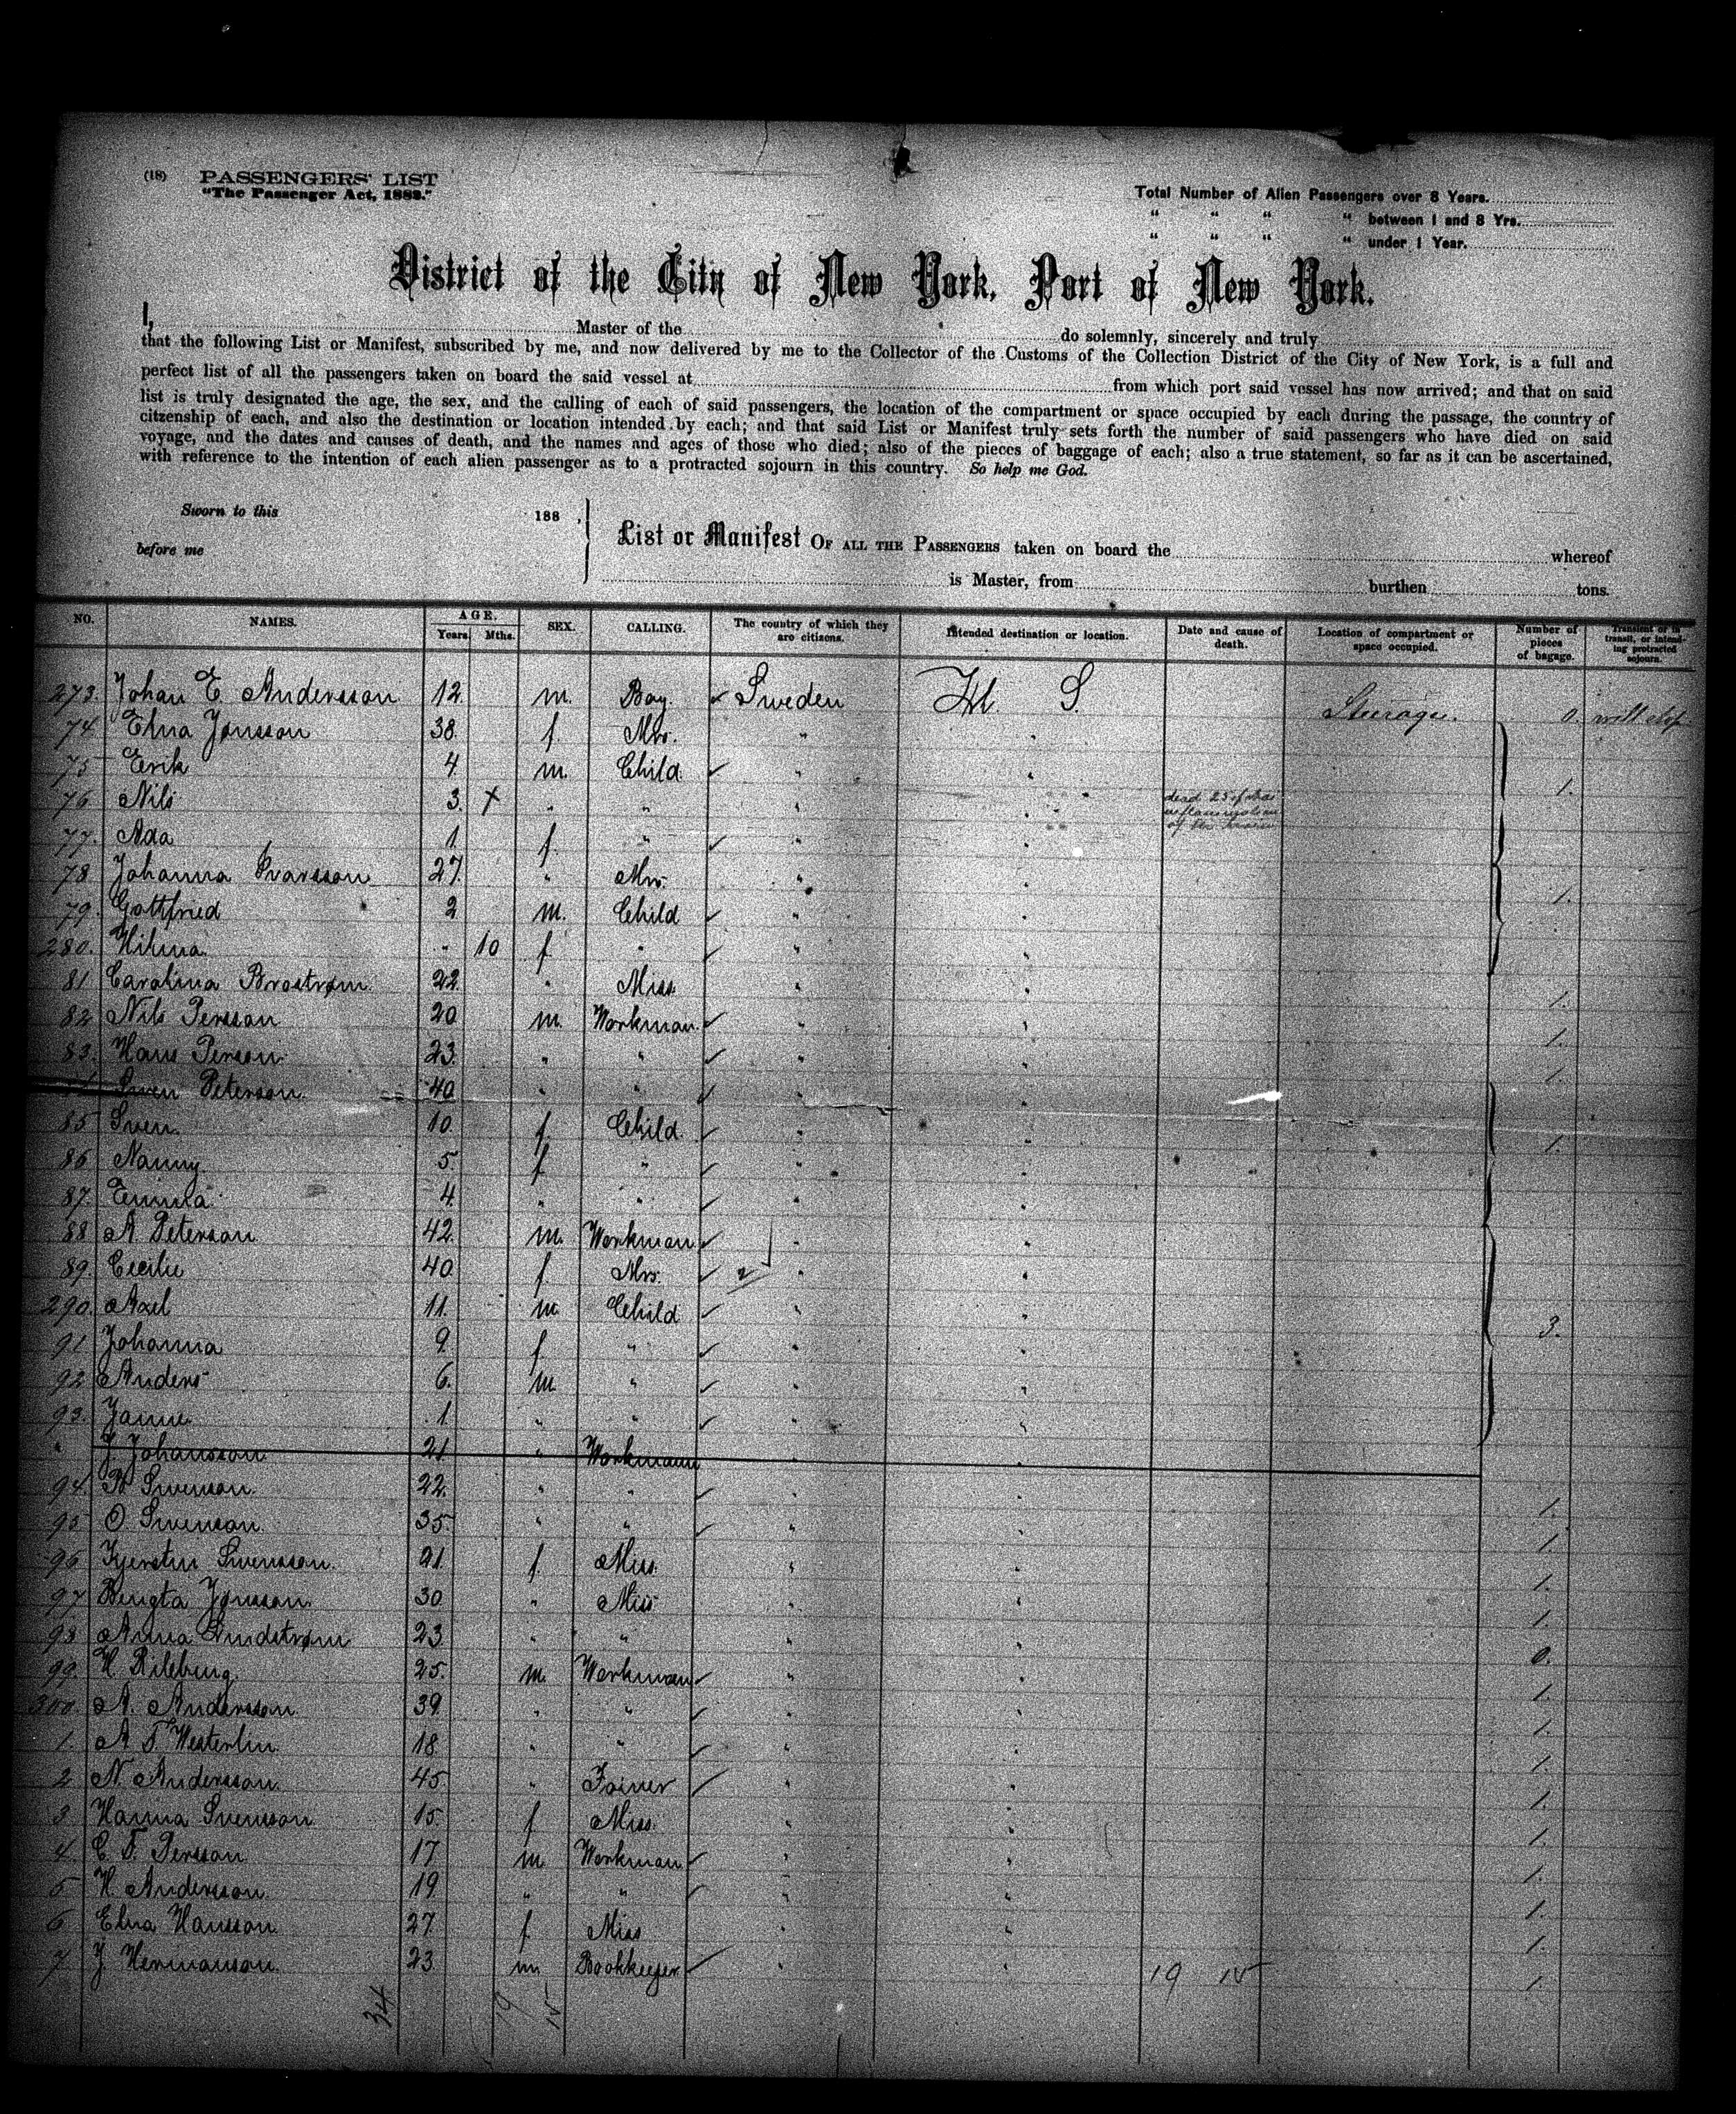 (18) PASSENGERS' LIST
"The Passenger Act, 1882."
Total Number of Alien Passengers over 8 Years.
" " " " between 1 and 8 Yrs.
" " " " under 1 Year.
District of the City of New York, Port of New York.
I, Master of the do solemnly, sincerely and truly
that the following List or Manifest, subscribed by me, and now delivered by me to the Collector of the Customs of the Collection District of the City of New York, is a full and
perfect list of all the passengers taken on board the said vessel at from which port said vessel has now arrived; and that on said
list is truly designated the age, the sex, and the calling of each of said passengers, the location of the compartment or space occupied by each during the passage, the country of
citzenship of each, and also the destination or location intended by each; and that said List or Manifest truly sets forth the number of said passengers who have died on said
voyage, and the dates and causes of death, and the names and ages of those who died; also of the pieces of baggage of each; also a true statement, so far as it can be ascertained,
with reference to the intention of each alien passenger as to a protracted sojourn in this country. So help me God.
Sworn to this 188 ,
before me
List or Manifest OF ALL THE PASSENGERS taken on board the whereof
is Master, from burthen tons.
NO. NAMES. AGE. Years Mths. SEX. CALLING. The country of which they are citizens. Intended destination or location. Date and cause of death. Location of compartment or space occupied. Number of pieces of bagage. Transient or in transit, or intending protracted sojourn.
273. Johan E. Andersson 12. m. Boy. Sweden U. S. Steerage. 0. will stop
74 Elna Jönsson 38. f. Mrs. " "
75 Erik 4. m. Child. " " 1.
76 Nils 3. x " " " " dead 25 of
77. Ada 1. f. " " "
78 Johanna Svarsson 27. " Mrs. " "
79. Gottfried 2 m. Child " " 1.
280. Hilma " 10 f. " " "
81 Carolina Brostrøm. 22. " Miss. " " 1.
82 Nils Persson 20 m. Workman. " " 1.
83. Hans Person. 23. " " " " 1.
Swen Peterson. 40 " " " "
85 Swen. 10. f. Child. " " 1.
86 Nanny. 5. f. " " "
87. Emma. 4. " " " "
88 A. Peterson 42. m. Workman " "
89. Cecilie 40 f. Mrs. 2 " "
290. Axel 11. m. Child " " 3.
91 Johanna 9. f. " " "
92 Anders 6. m. " " "
93. Janne. 1. " " " "
" J. Johansson 21 " Workmann " "
94. Swenson. 22. " " " 1.
95 O. Swenson. 35. " " " " 1.
96 Kjerstin Swensson. 21. f. Miss. " " 1.
97 Bengta Jönsson. 30 " Miss " " 1.
98 Anna Lindstrøm 23. " " " " 0.
99. H. Rileberg. 25. m. Workman " " 1.
300. A. Andersson 39. " " " " 1.
1. A. F. Westerlin. 18. " " " " 1.
2 N. Andersson. 45. " Joiner " " 1.
3 Hanna Svensson 15. f Miss. " " 1.
4. C. F. Persson. 17 m. Workman " " 1.
5 H. Andersson. 19. " " " " 1.
6 Elna Hansson 27. f. Miss " " 1.
7 J. Hermanson. 23. m. Bookkeeper " " 19 15 1.
34 19 15